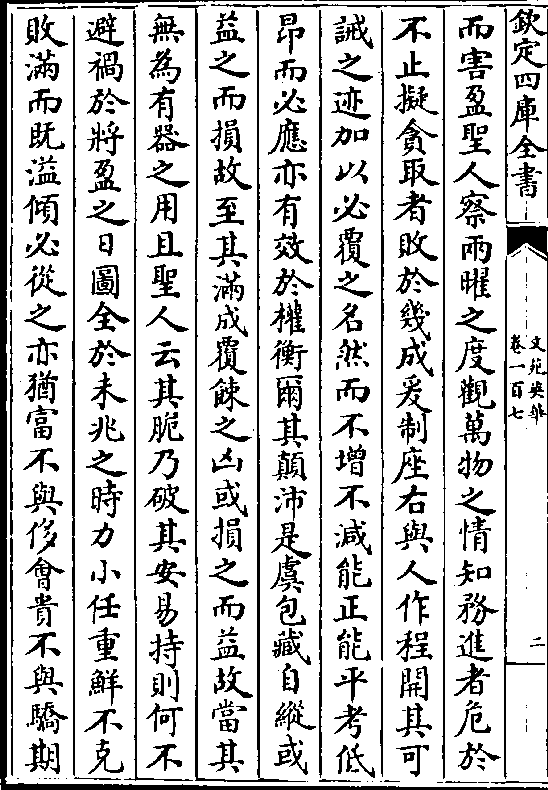 欽定四庫全書
文苑英華
卷一百七
二
而害盈聖人察兩曜之度觀萬物之情知務進者危於
不止擬貪取者敗於幾成爰制座右與人作程開其可
誡之迹加以必覆之名然而不增不減能正能平考低
昂而必應亦有效於權衡爾其顛沛是虞包藏自縱或
益之而損故至其滿成覆餗之凶或損之而益故當其
無為有器之用且聖人云其脆乃破其安易持則何不
避禍於將盈之日圖全於未兆之時力小任重鮮不克
敗滿而既溢傾必從之亦猶富不與侈會貴不與驕期